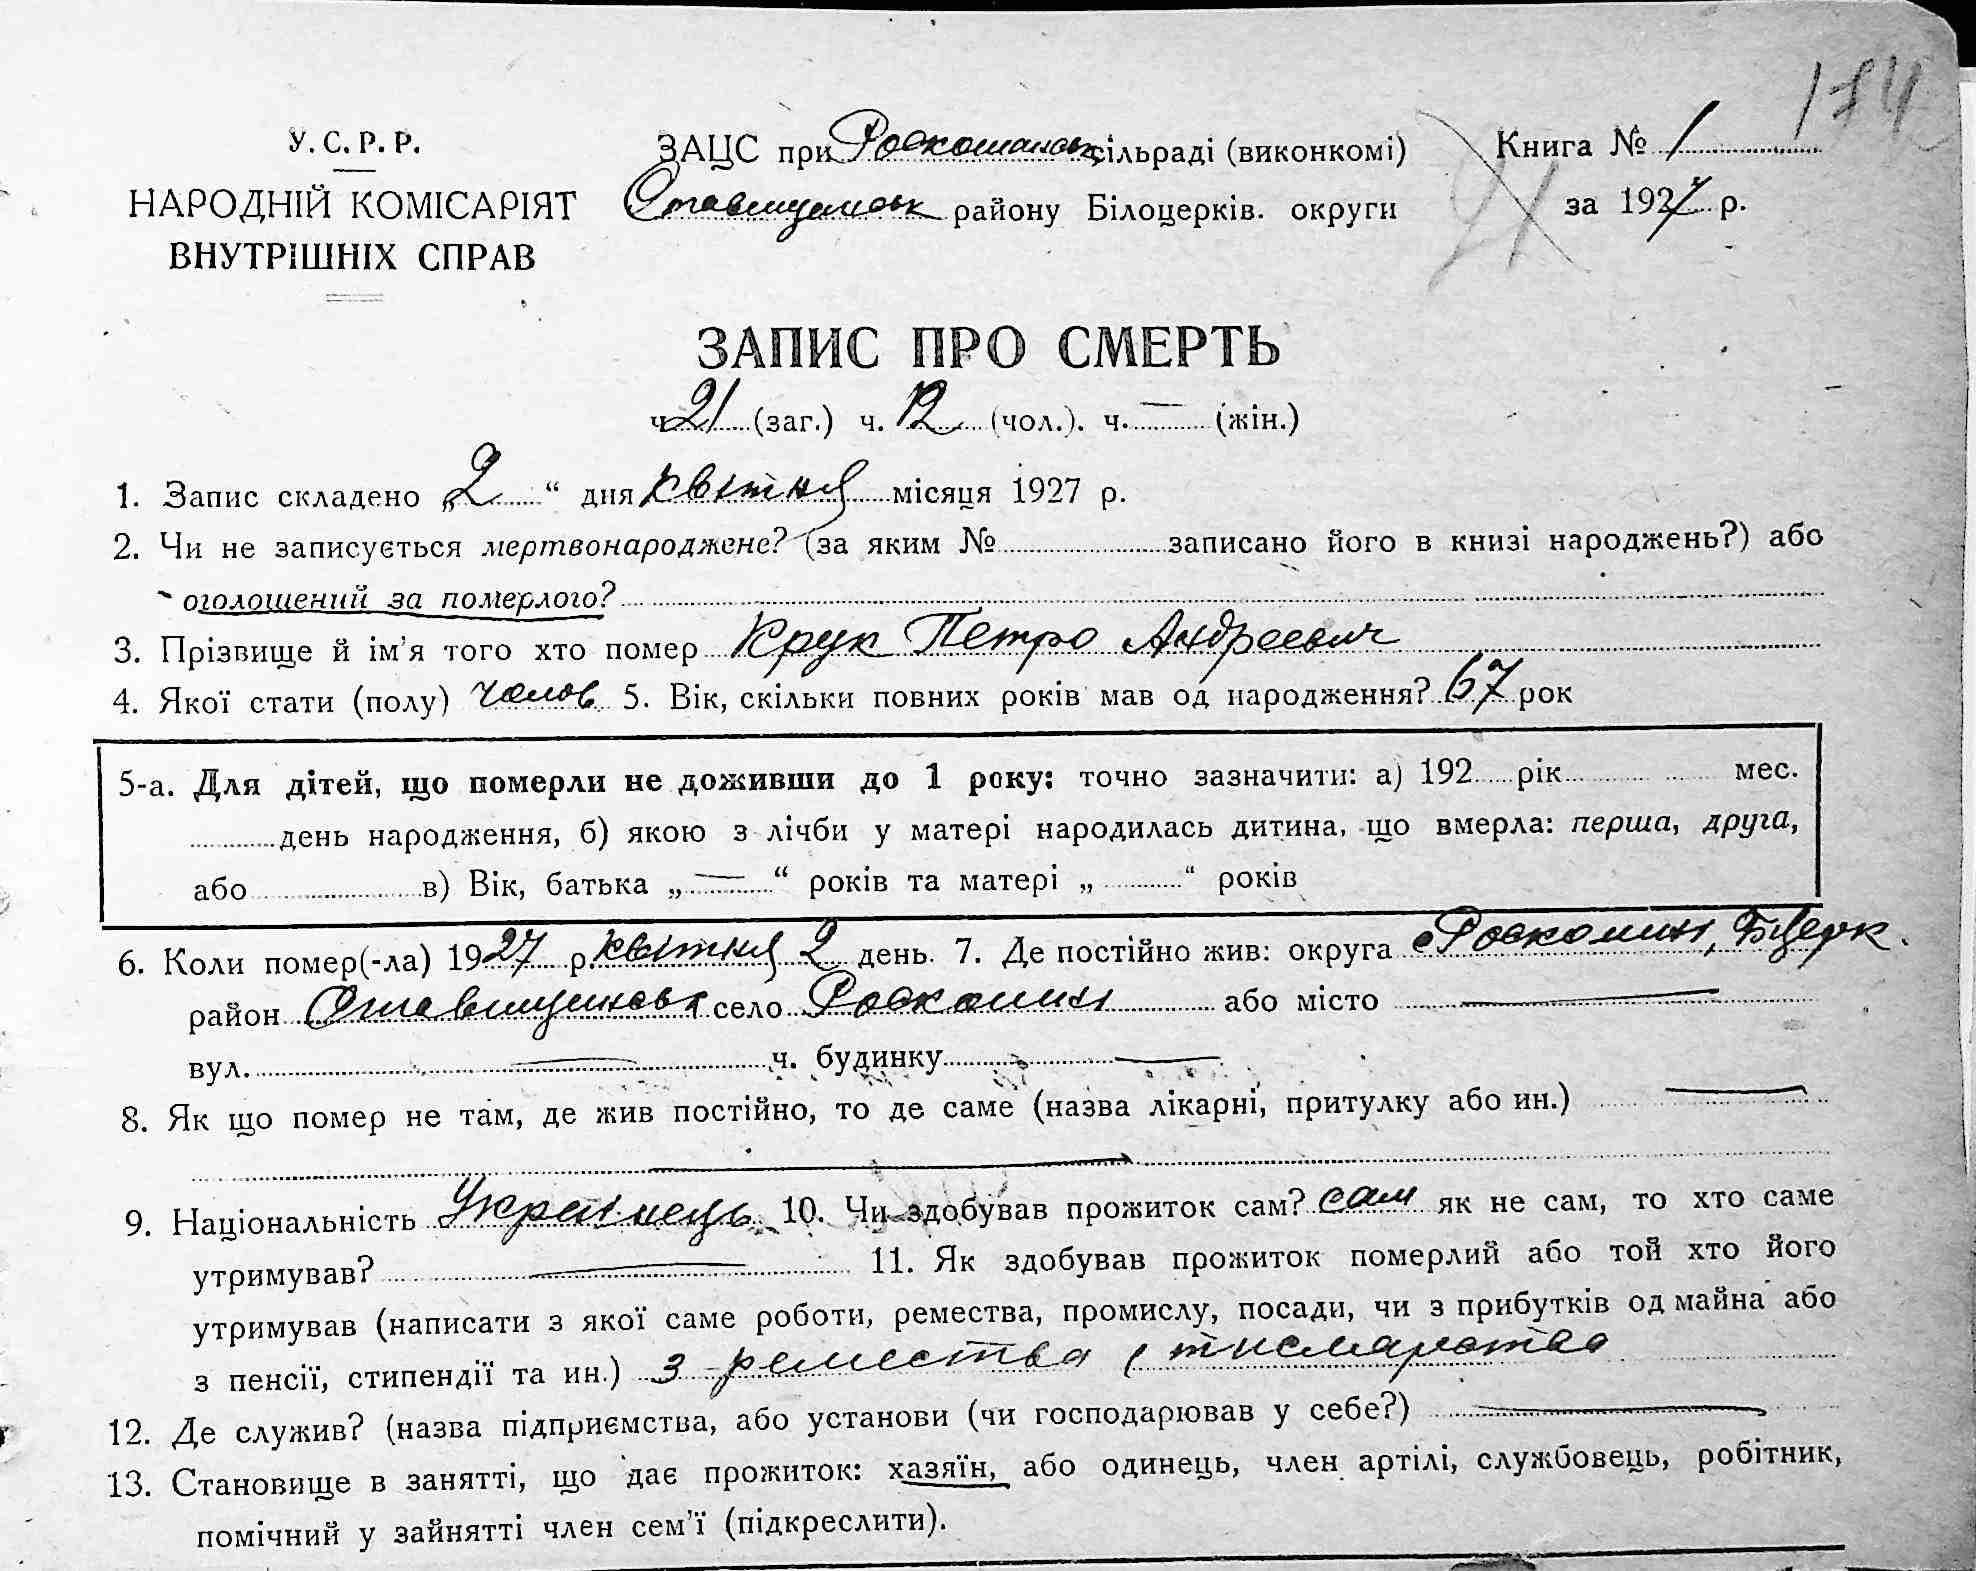 184
У. С. Р. Р.
НАРОДНІЙ КОМІСАРІЯТ
ВНУТРІШНІХ СПРАВ
ЗАЦС при Роскошанськ сільраді (виконкомі)
Ставищанськ району Білоцерків. округи
Книга № 1
за 1927 р.
21
ЗАПИС ПРО СМЕРТЬ
ч. 21 (заг.) ч. 12 (чол.). ч. — (жін.)
1. Запис складено „2“ дня квітня місяця 1927 р.
2. Чи не записується мертвонароджене? (за яким № записано його в книзі народжень?) або
оголошений за померлого?
3. Прізвище й ім’я того хто помер Крук Петро Андреевич
4. Якої стати (полу) Чолов 5. Вік, скільки повних років мав од народження? 67 рок
5-а. Для дітей, що померли не доживши до 1 року: точно зазначити: а) 192 рік мес.
день народження, б) якою з лічби у матері народилась дитина, що вмерла: перша, друга,
або в) Вік, батька „—“ років та матері „ “ років
6. Коли помер(-ла) 1927 р. квітня 2 день. 7. Де постійно жив: округа с Роскошн, БЦерк.
район Ставищанськ село Роскошн або місто —
вул. — ч. будинку —
8. Як що помер не там, де жив постійно, то де саме (назва лікарні, притулку або ин.) —
—
9. Національність Українець 10. Чи здобував прожиток сам? сам як не сам, то хто саме
утримував? — 11. Як здобував прожиток померлий або той хто його
утримував (написати з якої саме роботи, ремества, промислу, посади, чи з прибутків од майна або
з пенсії, стипендії та ин.) з ремества
12. Де служив? (назва підприємства, або установи (чи господарював у себе?) —
13. Становище в занятті, що дає прожиток: хазяїн, або одинець, член артілі, службовець, робітник,
помічний у зайнятті член сем’ї (підкреслити).